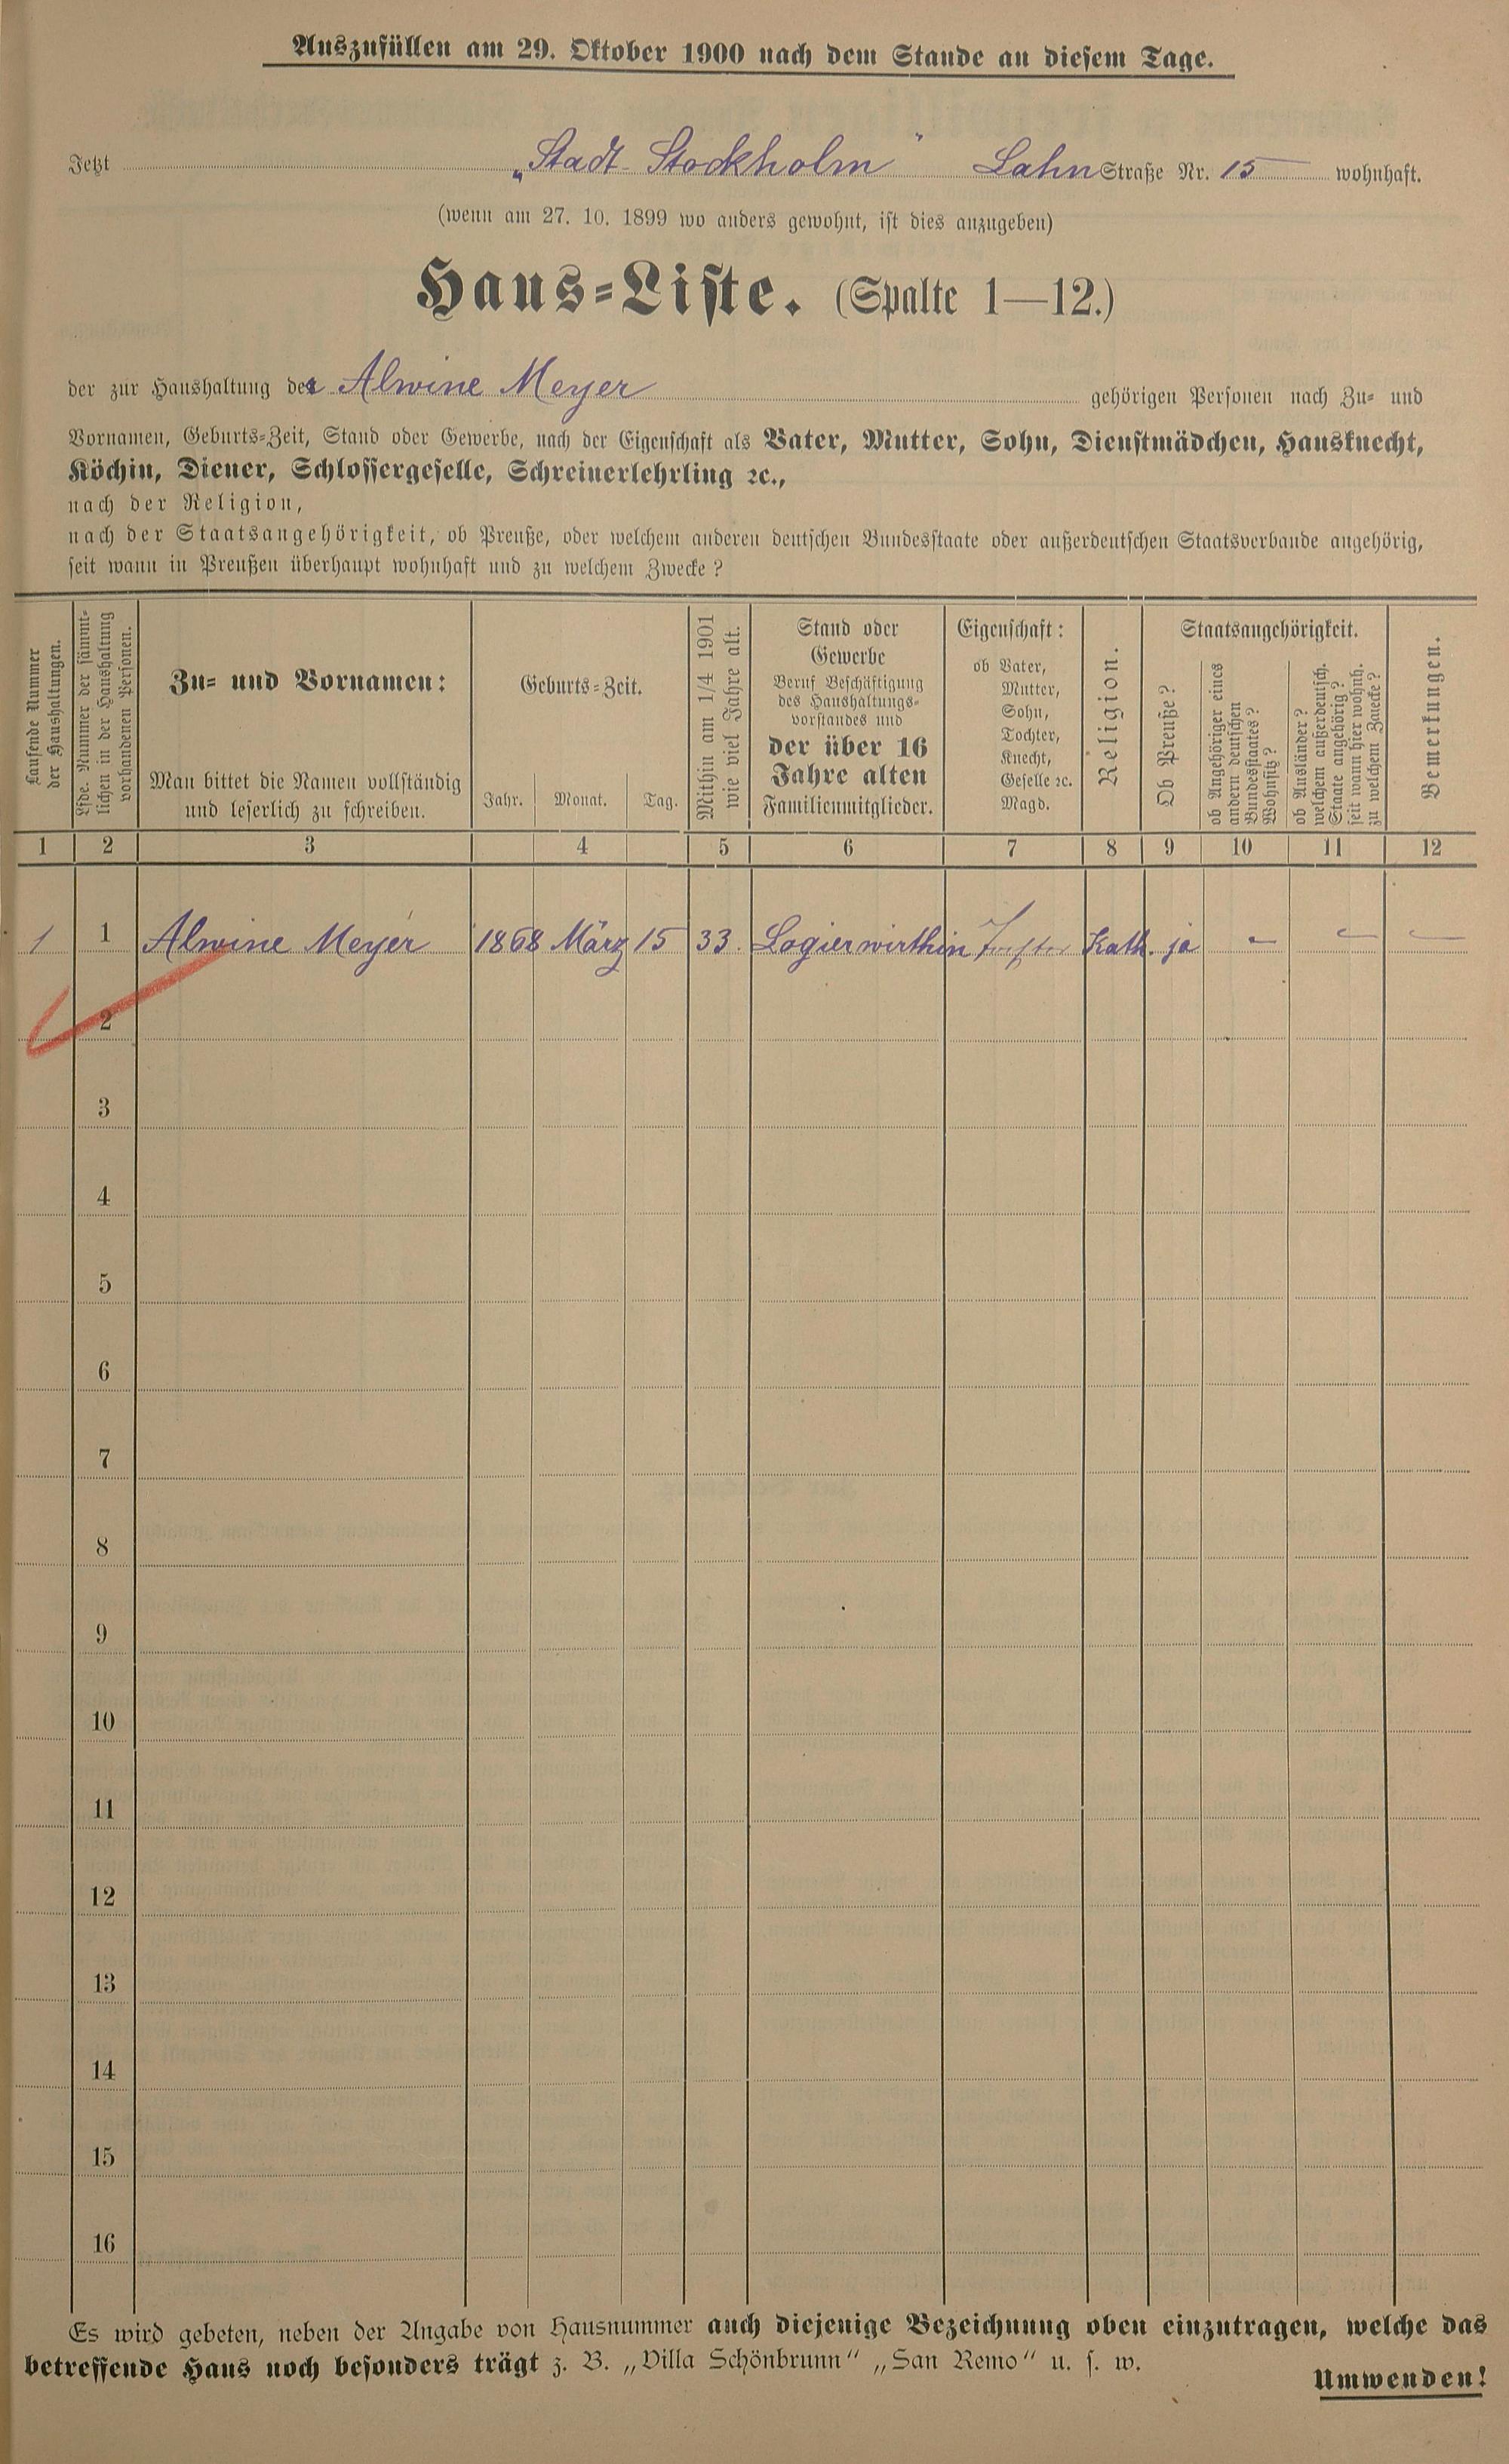 Auszufüllen am 29. Oktober 1900 nach dem Stande an diesem Tage.
Jetzt „Stadt Stockholm" Lahn Straße Nr. 15 wohnhaft.
(wenn am 27. 10. 1899 wo anders gewohnt, ist dies anzugeben)
Haus-Liste. (Spalte 1—12.)
der zur Haushaltung der Alwine Meyer gehörigen Personen nach Zu- und
Vornamen, Geburts-Zeit, Stand oder Gewerbe, nach der Eigenschaft als Vater, Mutter, Sohn, Dienstmädchen, Hausknecht,
Köchin, Diener, Schlossergeselle, Schreinerlehrling ꝛc.,
nach der Religion,
nach der Staatsangehörigkeit, ob Preuße, oder welchem anderen deutschen Bundesstaate oder außerdeutschen Staatsverbande angehörig,
seit wann in Preußen überhaupt wohnhaft und zu welchem Zwecke?
Laufende Nummer
der Haushaltungen.
Lfde. Nummer der sämmt-
lichen in der Haushaltung
vorhandenen Personen.
Zu- und Vornamen:
Man bittet die Namen vollständig
und leserlich zu schreiben.
Geburts-Zeit.
Jahr. Monat. Tag.
Mithin am 1/4 1901
wie viel Jahre alt.
Stand oder
Gewerbe
Beruf Beschäftigung
des Haushaltungs-
vorstandes und
der über 16
Jahre alten
Familienmitglieder.
Eigenschaft:
ob Vater,
Mutter,
Sohn,
Tochter,
Knecht,
Geselle ꝛc.
Magd.
Religion.
Staatsangehörigkeit.
Ob Preuße?
ob Angehöriger eines
andern deutschen
Bundesstaates?
Wohnsitz?
ob Ausländer?
welchem außerdeutsch.
Staate angehörig?
seit wann hier wohnh.
zu welchem Zwecke?
Bemerkungen.
1 2 3 4 5 6 7 8 9 10 11 12
1 1 Alwine Meyer 1868 März 15 33. Logierwirthin Kath. ja — — —
2
3
4
5
6
7
8
9
10
11
12
13
14
15
16
Es wird gebeten, neben der Angabe von Hausnummer auch diejenige Bezeichnung oben einzutragen, welche das
betreffende Haus noch besonders trägt z. B. „Villa Schönbrunn" „San Remo" u. s. w.
Umwenden!